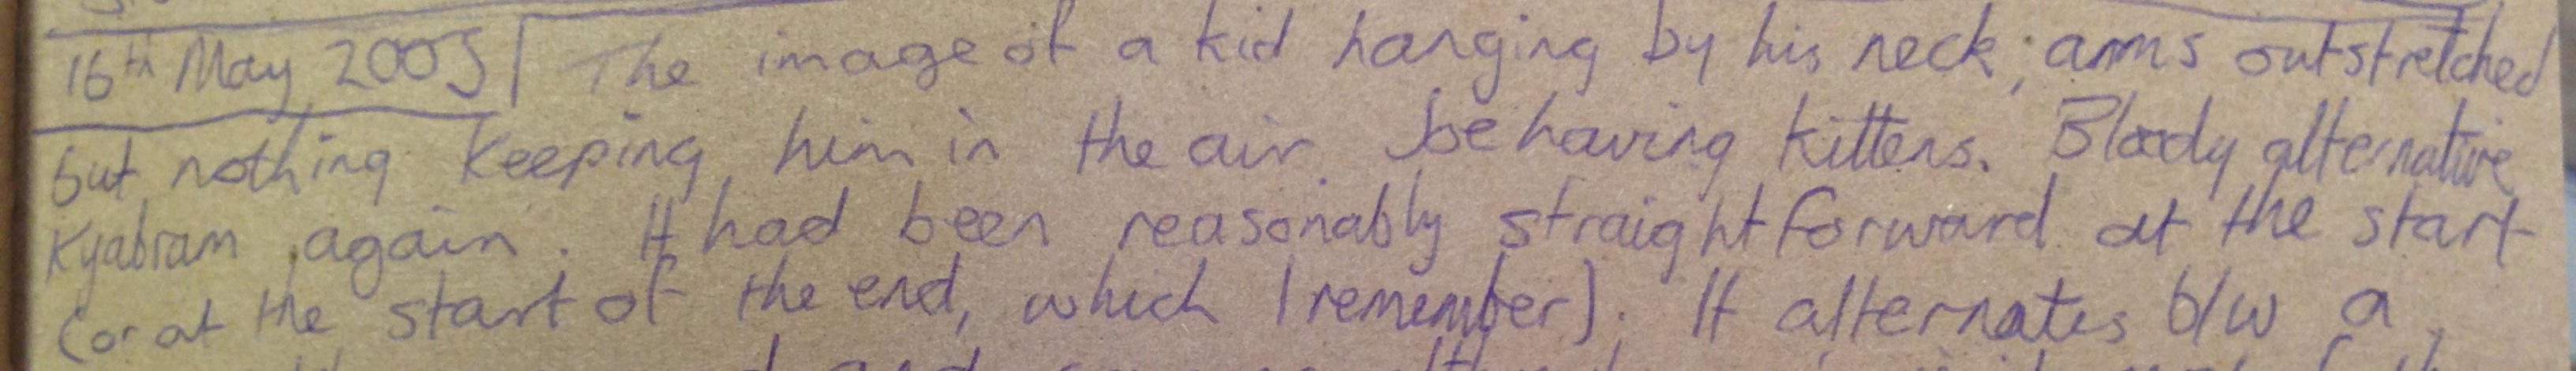 16th May, 2005 | The image of a kid hanging by his neck; arms outstretched
but nothing keeping him in the air. be having kittens. Bloody alternative
Kyabram again. It had been reasonably straightforward at the start
(or at the start of the end, which I remember). It alternates b/w a